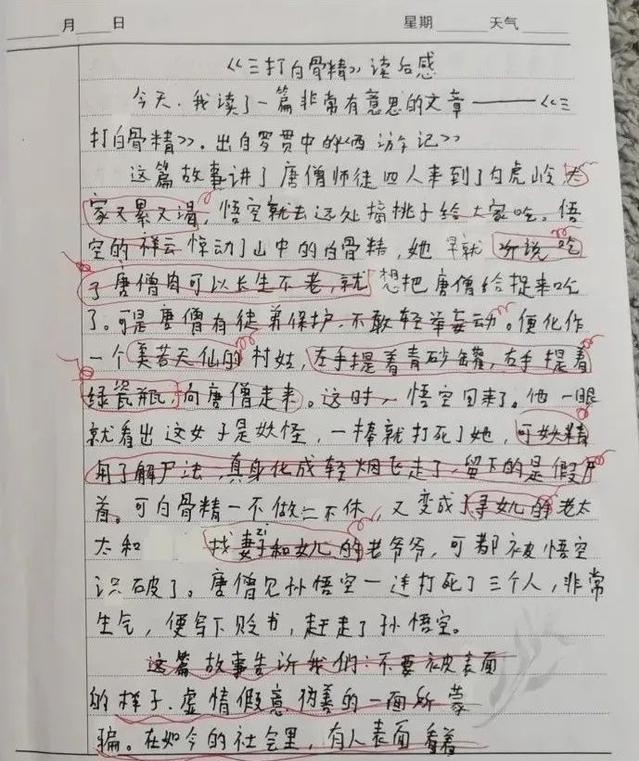 月 日 星期 天气
《三打白骨精》读后感
今天,我读了一篇非常有意思的文章——《三
打白骨精》。出自罗贯中的《西游记》
这篇故事讲了唐僧师徒四人来到了白虎岭大
家又累又渴,悟空就去远处摘桃子给大家吃。悟
空的祥云惊动了山中的白骨精,她早就听说吃
了唐僧肉可以长生不老,就想把唐僧给捉来吃
了。可是唐僧有徒弟保护,不敢轻举妄动。便化作
一个美若天仙的村姑,左手提着青砂罐,右手提着
绿瓷瓶向唐僧走来。这时,悟空回来了。他一眼
就看出这女子是妖怪,一棒就打死了她,可妖精
用了解尸法,真身化成轻烟飞走了,留下的是假尸
首。可白骨精一不做二不休,又变成了寻女儿的老太
太和 找妻子zi和女儿的老爷爷,可都被悟空
识破了。唐僧见孙悟空一连打死了三个人,非常
生气,便写下贬书,赶走了孙悟空。
这篇故事告诉我们:不要被表面
的样子.虚情假意伪善的一面所蒙
骗。在如今的社会里,有人表面看着